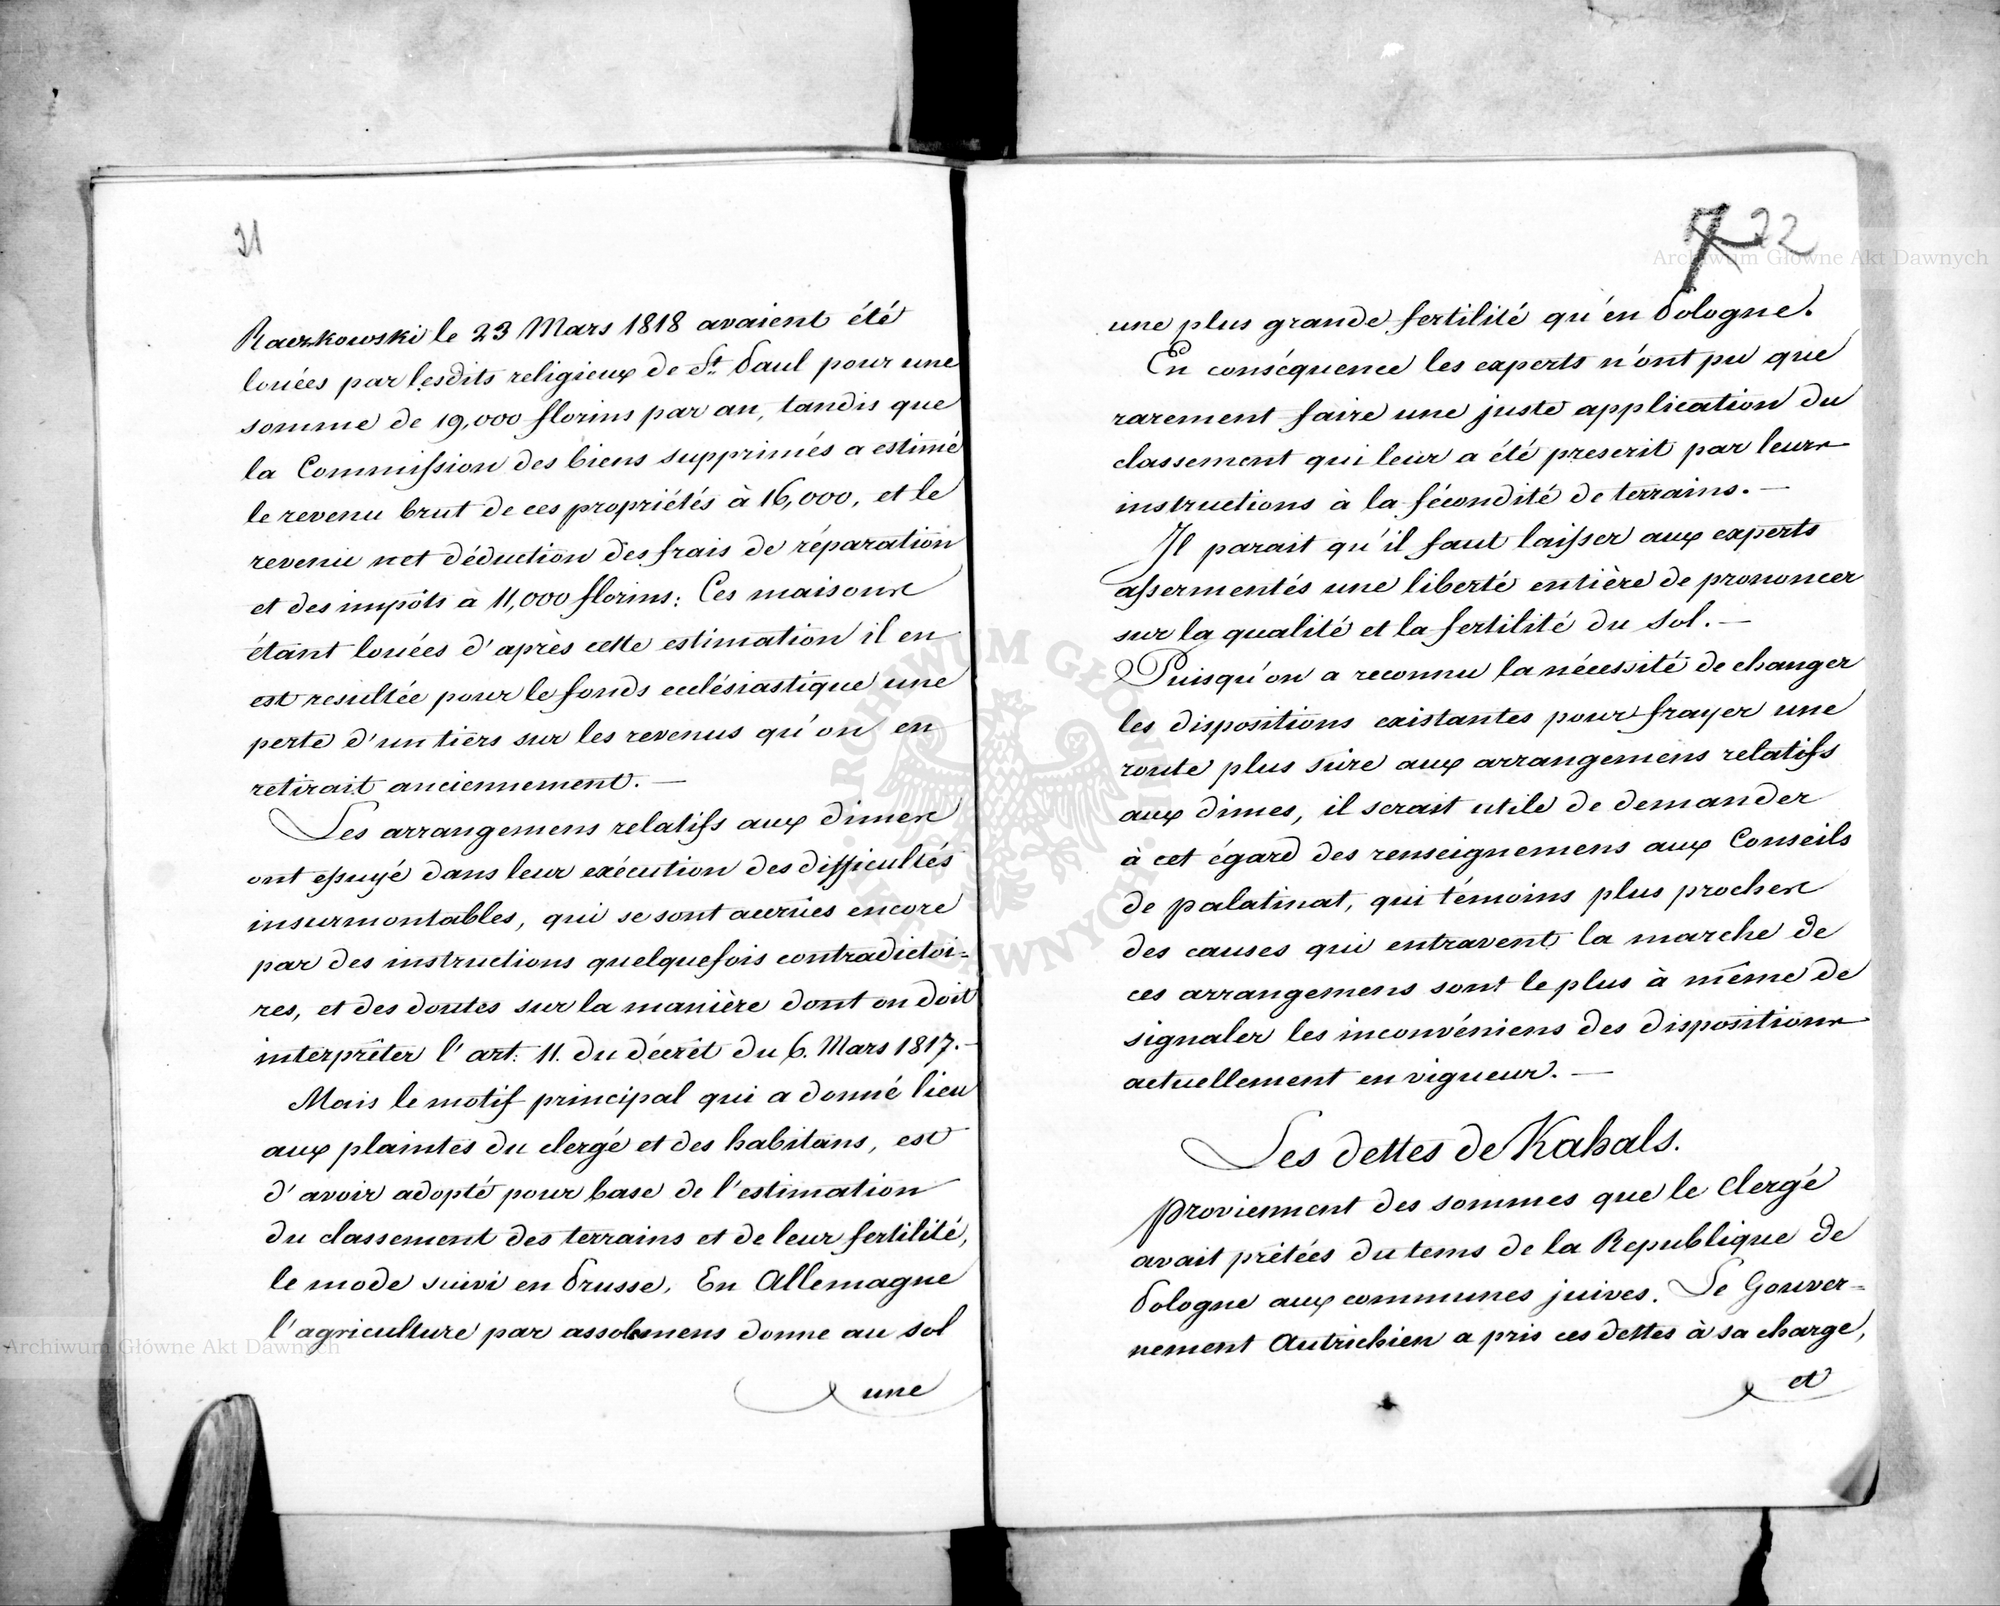 21
Raczkowski le 23 Mars 1818 avaient été
louées par lesdits religieux de St. Paul pour une
somme de 19,000 florins par an, tandis que
la Commission des biens supprimés a estimé
le revenu brut de ces propriétés à 16,000, et le
revenu net déduction des frais de réparation
et des impôts à 11,000 florins: Ces maisons
étant louées d'après cette estimation il en
est resultée pour le fonds ecclésiastique une
perte d'un tiers sur les revenus qu'on en
retirait anciennement. —
Les arrangemens relatifs aux dimes
ont essuyé dans leur exécution des difficultés
insurmontables, qui se sont accrues encore
par des instructions quelquefois contradictoi=
res, et des doutes sur la manière dont on doit
interprêter l'art: 11. du décrêt du 6. Mars 1817. —
Mais le motif principal qui a donné lieu
aux plaintes du clergé et des habitans, est
d'avoir adopté pour base de l'estimation
du classement des terrains et de leur fertilité,
le mode suivi en Prusse. En Allemagne
l'agriculture par assolemens donne au sol
une
7 22
une plus grande fertilité qu'en Pologne.
En conséquence les experts n'ont pu que
rarement faire une juste application du
classement qui leur a été prescrit par leurs
instructions à la fécondité de terrains. —
Il parait qu'il faut laisser aux experts
assermentés une liberté entière de prononcer
sur la qualité et la fertilité du sol. —
Puisqu'on a reconnu la nécessité de changer
les dispositions existantes pour frayer une
route plus sûre aux arrangemens relatifs
aux dimes, il serait utile de demander
à cet égard des renseignemens aux Conseils
de palatinat, qui témoins plus proches
des causes qui entravent la marche de
ces arrangemens sont le plus à même de
signaler les inconvéniens des dispositions
actuellement en vigueur. —
Les dettes de Kahals.
proviennent des sommes que le Clergé
avait prêtées du tems de la Republique de
Pologne aux communes juives. Le Gouver=
nement Autrichien a pris ces dettes à sa charge,
et
Archiwum Główne Akt Dawnych
Archiwum Główne Akt Dawnych
ARCHIWUM GŁÓWNE AKT DAWNYCH